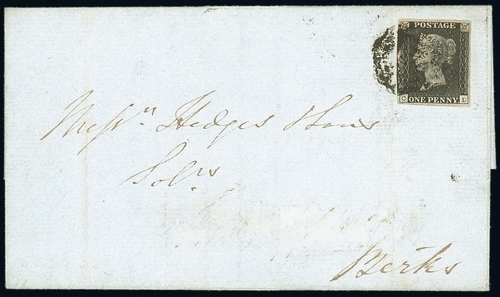 POSTAGE
ONE PENNY
Messrs Hedges & Sons
Solrs
Berks